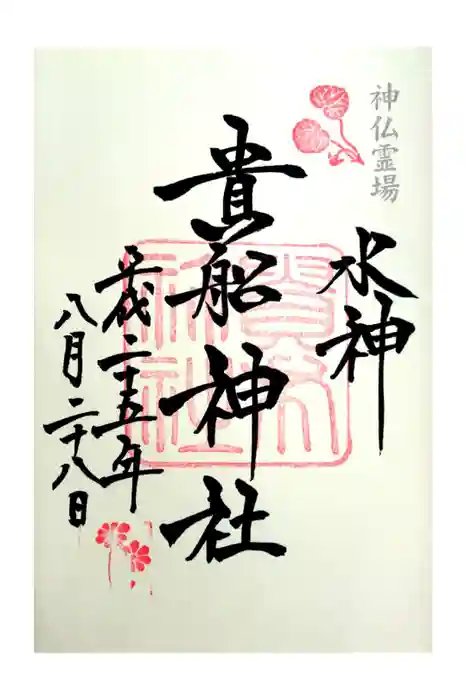 神仏霊場
水神
貴船神社
平成二十五年
八月二十八日
貴船
神社